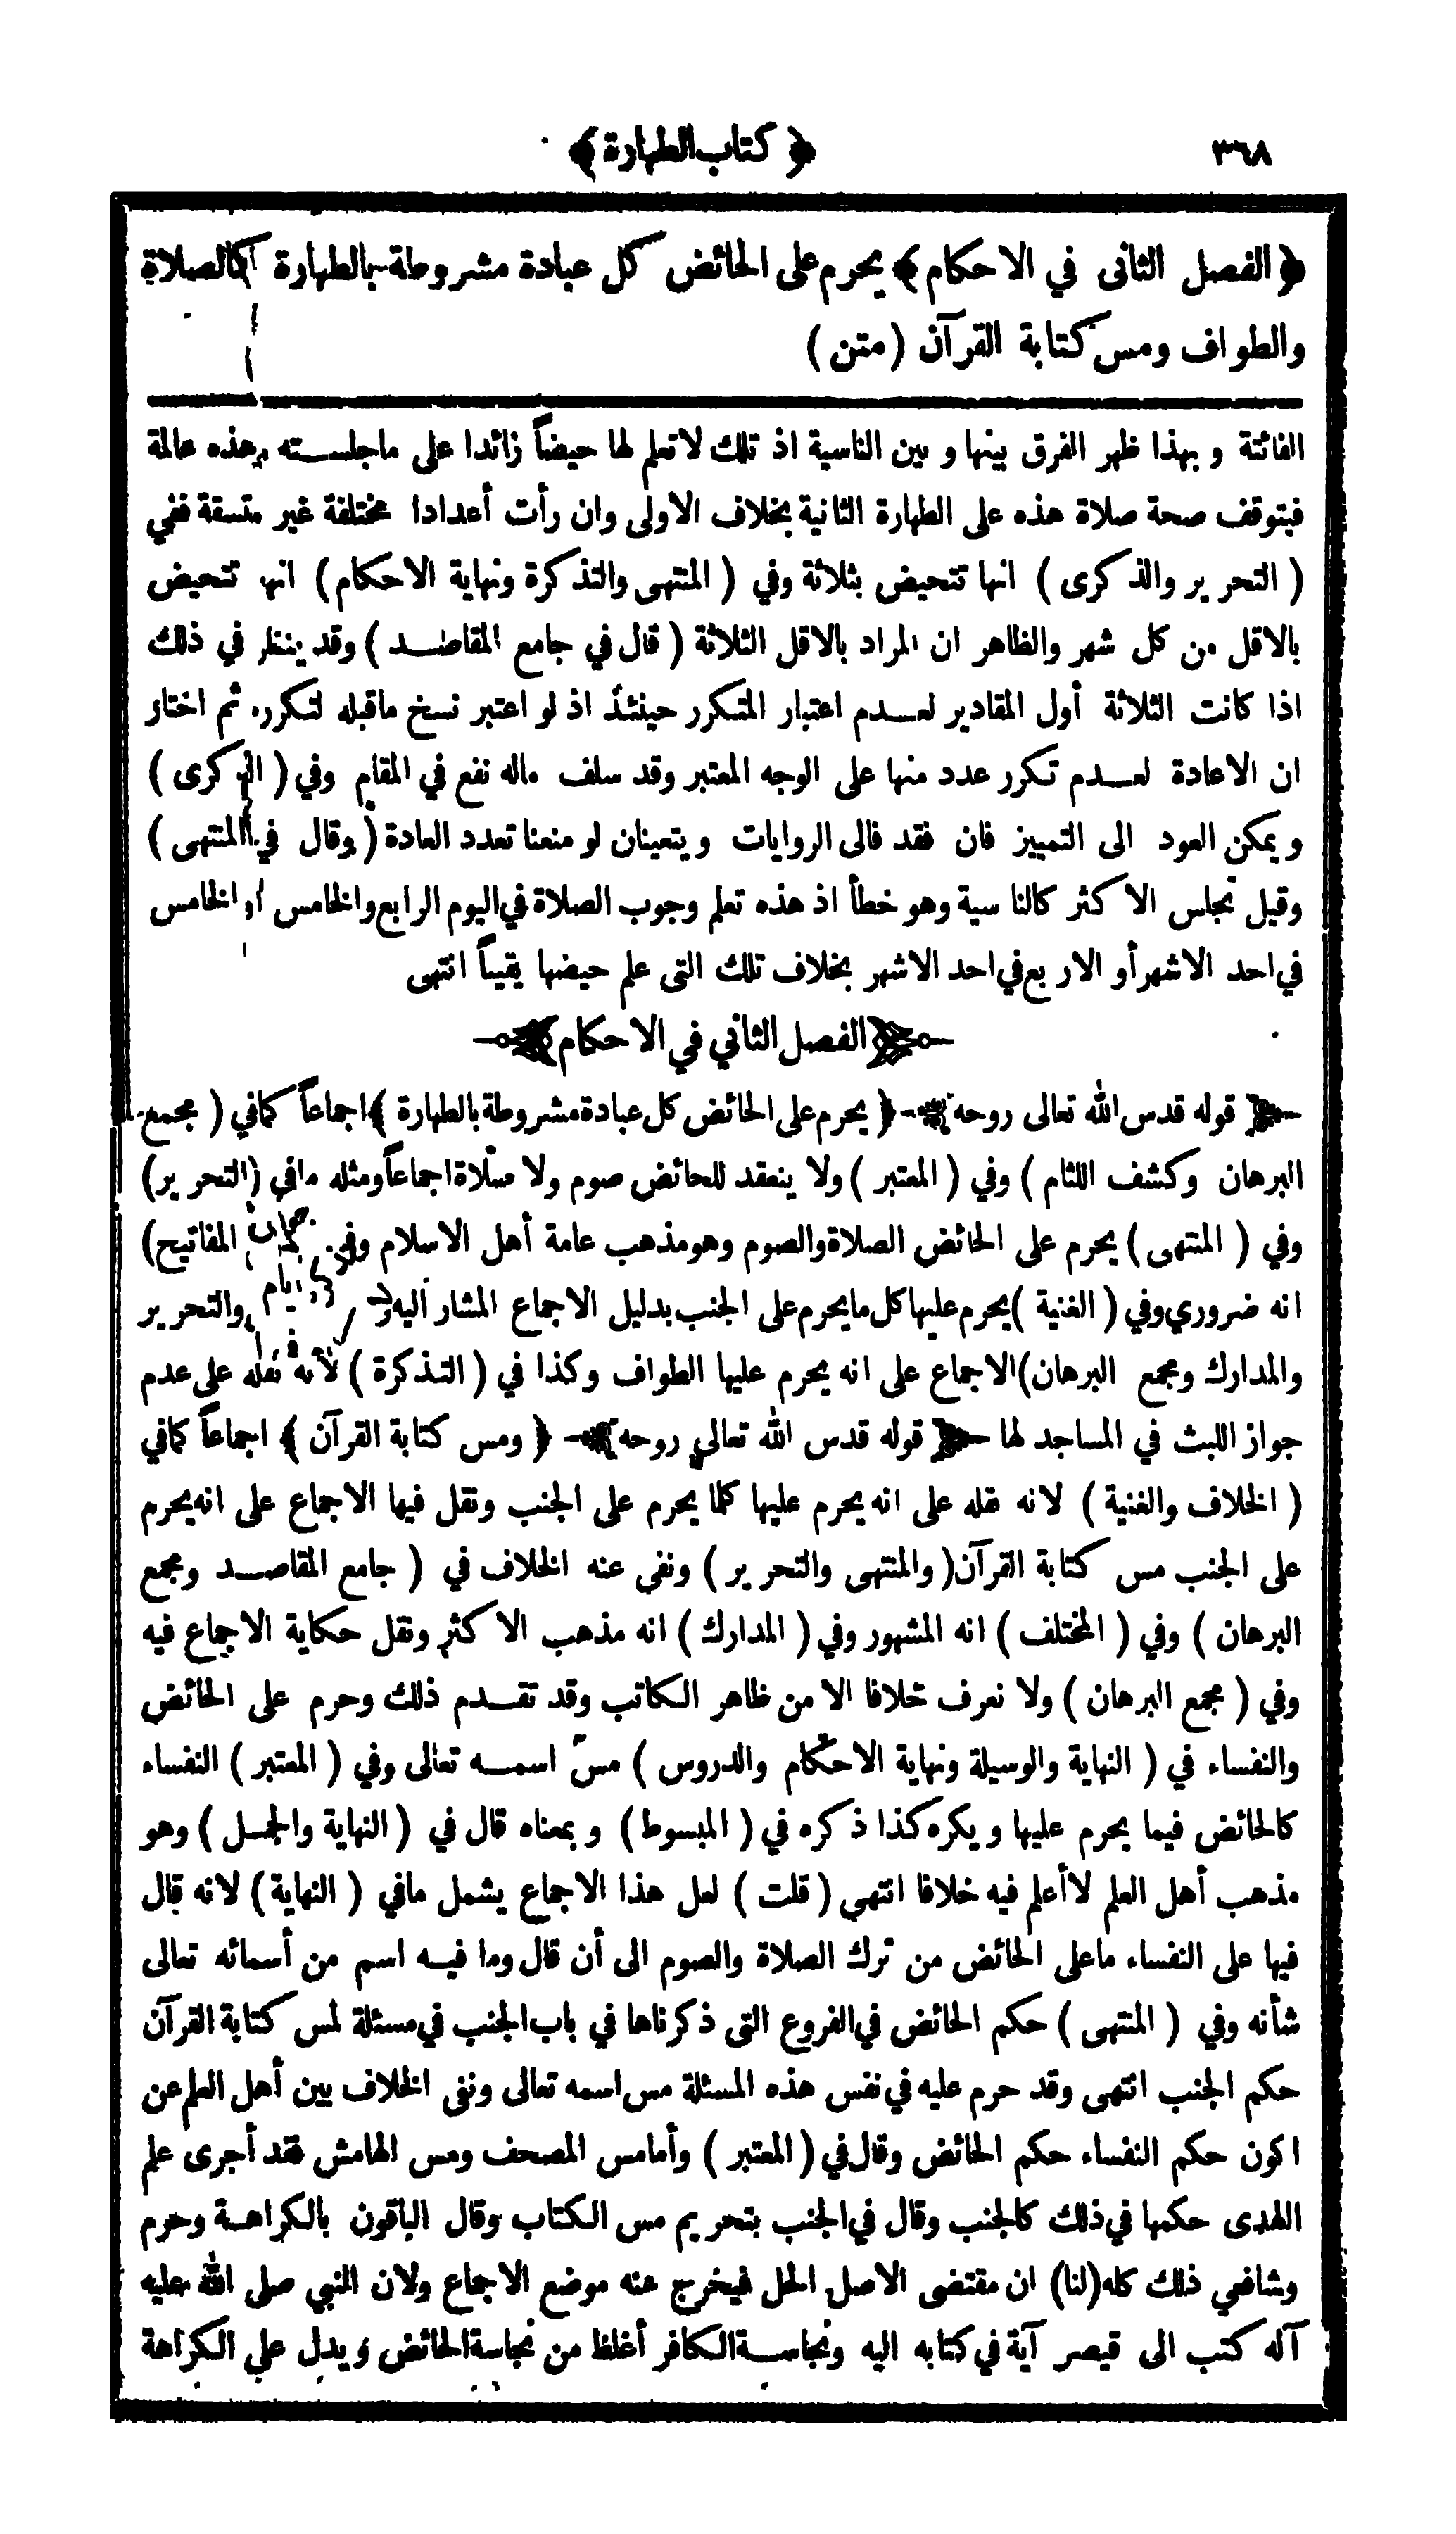 ٣٦٨
﴿ كتاب الطهارة ﴾
﴿ الفصل الثانى في الاحكام ﴾ يحرم على الحائض كل عبادة مشروطة بالطهارة كالصلاة
والطواف ومس كتابة القرآن (متن)
الفائتة وبهذا ظهر الفرق بينها وبين الناسية اذ تلك لاتعلم لها حيضاً زائدا على ماجلسته وهذه عالمة
فبتوقف صحة صلاة هذه على الطهارة الثانية بخلاف الاولى وان رأت أعدادا مختلفة غير متسقة ففي
( التحرير والذكرى ) انها تتحيض بثلاثة وفي ( المنتهى والتذكرة ونهاية الاحكام ) انها تتحيض
بالاقل من كل شهر والظاهر ان المراد بالاقل الثلاثة ( قال في جامع المقاصد ) وقد ينظر في ذلك
اذا كانت الثلاثة أول المقادير لعدم اعتبار المتكرر حينئذ اذ لو اعتبر نسخ ماقبله لتكرره ثم اختار
ان الاعادة لعدم تكرر عدد منها على الوجه المعتبر وقد سلف ماله نفع في المقام وفي ( الذكرى )
ويمكن العود الى التمييز فان فقد فالى الروايات ويتعينان لو منعنا تعدد العادة ( وقال في المنتهى )
وقيل تجلس الاكثر كالناسية وهو خطأ اذ هذه تعلم وجوب الصلاة في اليوم الرابع والخامس او الخامس
في احد الاشهر أو الاربع في احد الاشهر بخلاف تلك التى علم حيضها يقيناً انتهى
﴿ الفصل الثاني في الاحكام ﴾
﴿ قوله قدس الله تعالى روحه ﴾ ﴿ يحرم على الحائض كل عبادة مشروطة بالطهارة ﴾ اجماعاً كمافي ( مجمع
البرهان وكشف اللثام ) وفي ( المعتبر ) ولا ينعقد للحائض صوم ولا صلاة اجماعاً ومثله مافي (التحرير)
وفي ( المنتهى ) يحرم على الحائض الصلاة والصوم وهو مذهب عامة أهل الاسلام وفي المفاتيح)
انه ضروري وفي ( الغنية ) يحرم عليها كل مايحرم على الجنب بدليل الاجماع المشار اليه والتحرير
والمدارك ومجمع البرهان) الاجماع على انه يحرم عليها الطواف وكذا في ( التذكرة ) لأنه نقله على عدم
جواز اللبث في المساجد لها ﴿ قوله قدس الله تعالى روحه ﴾ ﴿ ومس كتابة القرآن ﴾ اجماعاً كمافي
( الخلاف والغنية ) لانه نقله على انه يحرم عليها كلما يحرم على الجنب ونقل فيها الاجماع على انه يحرم
على الجنب مس كتابة القرآن ( والمنتهى والتحرير ) ونفى عنه الخلاف في ( جامع المقاصد ومجمع
البرهان ) وفي ( المختلف ) انه المشهور وفي ( المدارك ) انه مذهب الاكثر ونقل حكاية الاجماع فيه
وفي ( مجمع البرهان ) ولا نعرف خلافا الا من ظاهر الكاتب وقد تقدم ذلك وحرم على الحائض
والنفساء في ( النهاية والوسيلة ونهاية الاحكام والدروس ) مس اسمه تعالى وفي ( المعتبر ) النفساء
كالحائض فيما يحرم عليها ويكره كذا ذكره في ( المبسوط ) وبمعناه قال في ( النهاية والجمل ) وهو
مذهب أهل العلم لاأعلم فيه خلافا انتهى ( قلت ) لعل هذا الاجماع يشمل مافي ( النهاية ) لانه قال
فيها على النفساء ماعلى الحائض من ترك الصلاة والصوم الى أن قال وما فيه اسم من أسمائه تعالى
شأنه وفي ( المنتهى ) حكم الحائض في الفروع التى ذكرناها في باب الجنب في مسئلة لمس كتابة القرآن
حكم الجنب انتهى وقد حرم عليه في نفس هذه المسئلة مس اسمه تعالى ونفى الخلاف بين أهل العلم عن
اكون حكم النفساء حكم الحائض وقال في ( المعتبر ) وأمامس المصحف ومس الهامش فقد أجرى علم
الهدى حكمها في ذلك كالجنب وقال في الجنب بتحريم مس الكتاب وقال الباقون بالكراهة وحرم
وشافعي ذلك كله (لنا) ان مقتضى الاصل الحل فيخرج عنه موضع الاجماع ولان النبي صلى الله عليه
آله كتب الى قيصر آية في كتابه اليه ونجاسة الكافر أغلظ من نجاسة الحائض ويدل على الكراهة